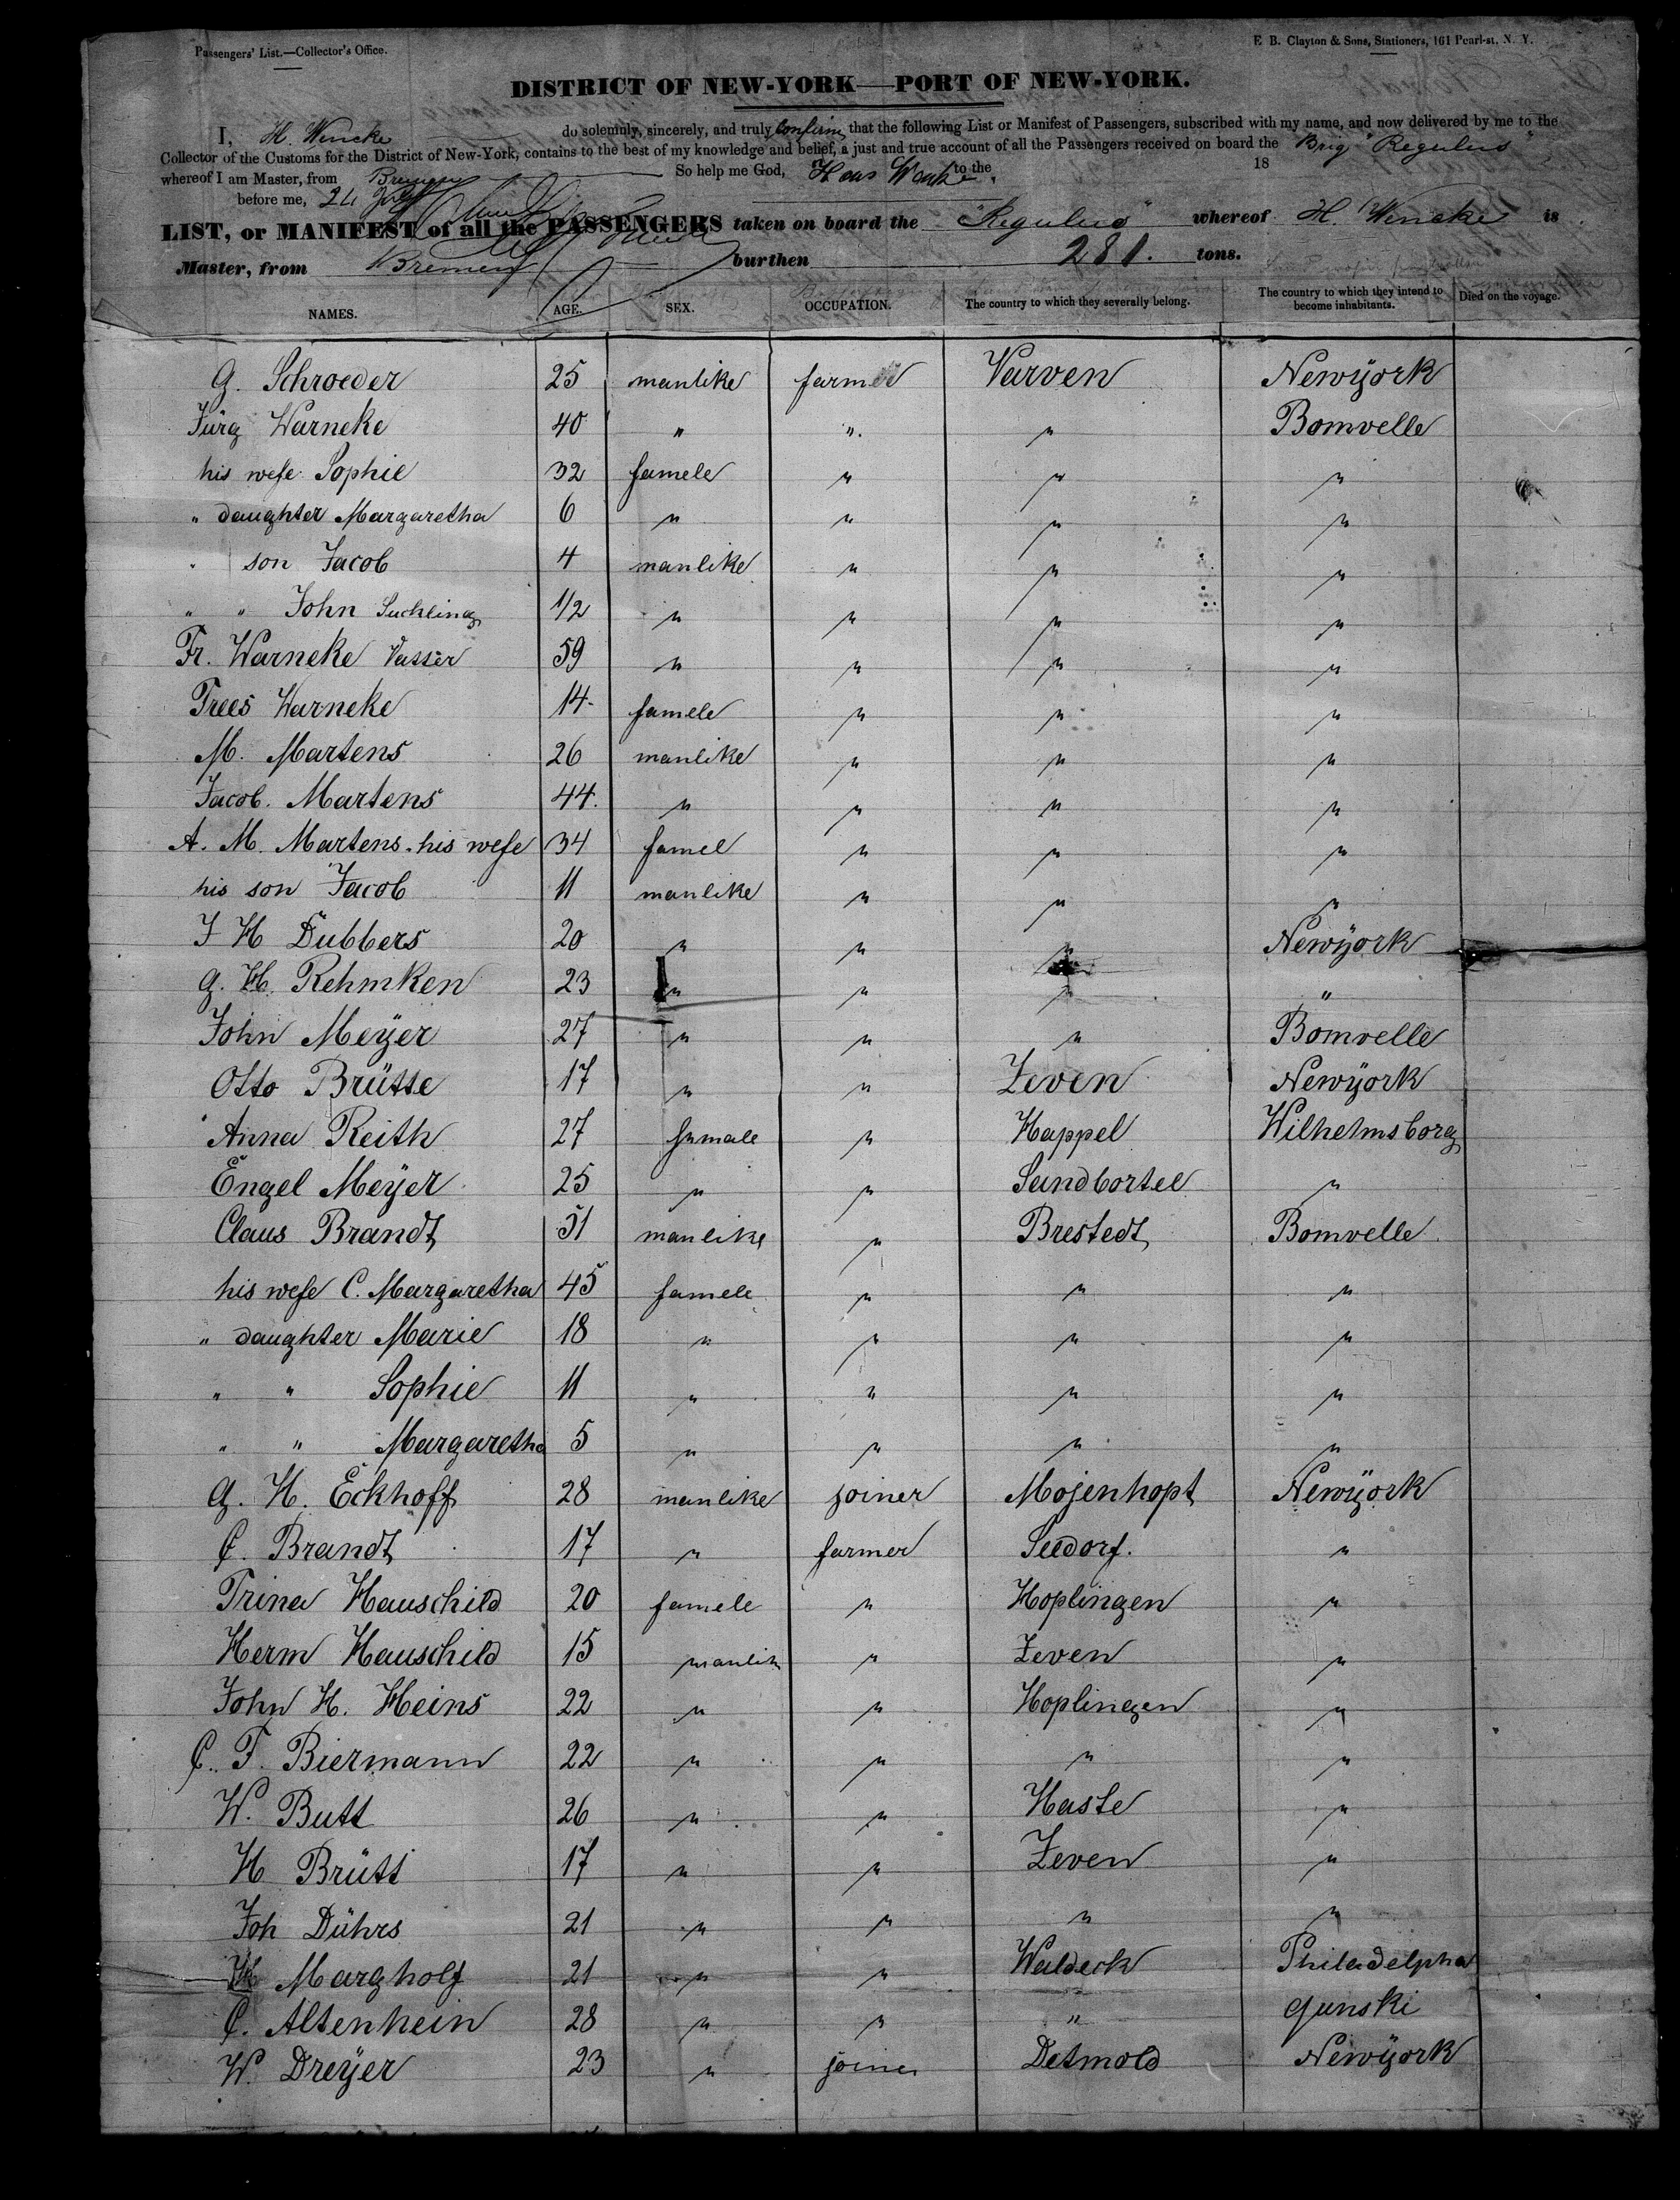 Passengers' List.—Collector's Office.
E. B. Clayton & Sons, Stationers, 161 Pearl-st. N. Y.
DISTRICT OF NEW-YORK—PORT OF NEW-YORK.
I, H. Wencke do solemnly, sincerely, and truly Confirm that the following List or Manifest of Passengers, subscribed with my name, and now delivered by me to the
Collector of the Customs for the District of New-York, contains to the best of my knowledge and belief, a just and true account of all the Passengers received on board the Brig "Regulus"
whereof I am Master, from Bremen So help me God, to the 18
before me, 24
LIST, or MANIFEST of all the PASSENGERS taken on board the "Regulus" whereof H. Wencke is
Master, from Bremen burthen 281. tons.
NAMES. AGE. SEX. OCCUPATION. The country to which they severally belong. The country to which they intend to become inhabitants. Died on the voyage.
G. Schroeder 25 manlike farmer Varven Newÿork
Jürg Warneke 40 " ". " Bomvelle
his wefe Sophie 32 famele " " "
" daughter Margaretha 6 " " " "
" son Jacob 4 manlike " " "
" " John Suckling 1/2 " " " "
Fr. Warneke Vatter 59 " " " "
Trees Warneke 14 famele " " "
M. Martens 26 manlike " " "
Jacob. Martens 44. " " " "
A. M. Martens his wefe 34 famel " " "
his son Jacob 11 manlike " " "
J H Dubbers 20 " " " Newÿork
G. H. Rehmken 23 " " " "
John Meÿer 27 " " " Bomvelle
Otto Brütte 17 " " Zeven Newÿork
Anna Reith 27 female " Happel Wilhelmsborg
Engel Meÿer 25 " " Sandbortel "
Claus Brandt 51 manlike " Brestedt Bomvelle
his wefe C. Margaretha 45 famele " " "
" daughter Marie 18 " " " "
" " Sophie 11 " " " "
" " Margaretha 5 " " " "
G. H. Eckhoff 28 manlike joiner Mojenhopt Newÿork
C. Brandt 17 " farmer Seedorf. "
Trina Hauschild 20 famele " Hoplingen "
Herm Hauschild 15 manlik " Zeven "
John H. Heins 22 " " Hoplingen "
C. F. Biermann 22 " " " "
W. Butt 26 " " Haste "
H Brütt 17 " " Zeven "
Joh Dührs 21 " " " "
H Margholf 21 " " Waldeck Philadelpha
C. Altenhein 28 " " " Gunski
W. Dreÿer 23 " joiner Detmold Newÿork